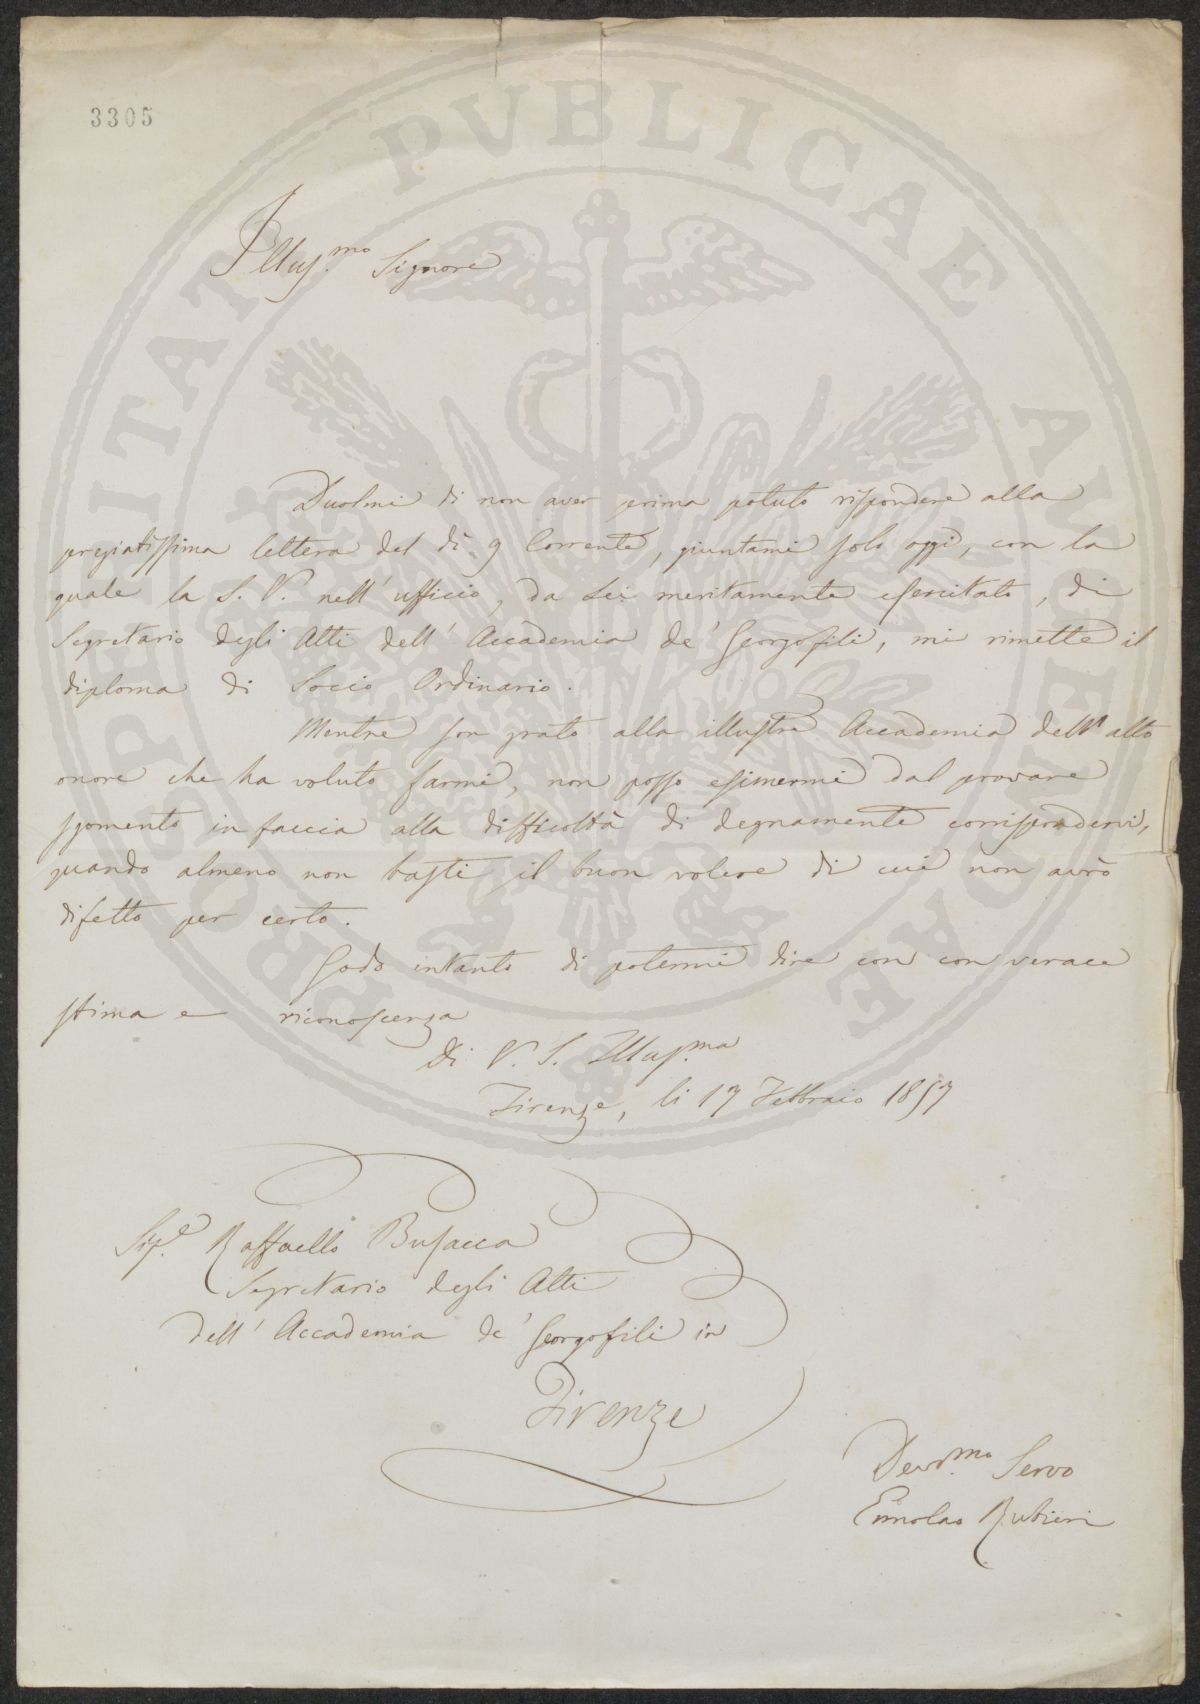 3305
PROSPERITATI PUBLICAE AUGENDAE
Illus.mo Signore
Duolmi di non aver prima potuto rispondere alla
pregiatissima lettera del dì 9 Corrente, giuntami solo oggi, con la
quale la S. V. nell' ufficio, da Lei meritamente esercitato, di
Segretario degli Atti dell' Accademia de' Georgofili, mi rimette il
diploma di Socio Ordinario.
Mentre son grato alla illustre Accademia dell' alto
onore che ha voluto farmi, non posso esimermi dal provare
sgomento in faccia alla difficoltà di degnamente corrispondervi,
quando almeno non basti il buon volere di cui non avrò
difetto per certo.
Godo intanto di potermi dire con con verace
stima e riconoscenza
Di V. S. Illus.ma
Firenze, li 17 Febbraio 1857
Sig.e Raffaello Busacca
Segretario degli Atti
dell' Accademia de' Georgofili in
Firenze
Devo.mo Servo
Ermolao Rubieri